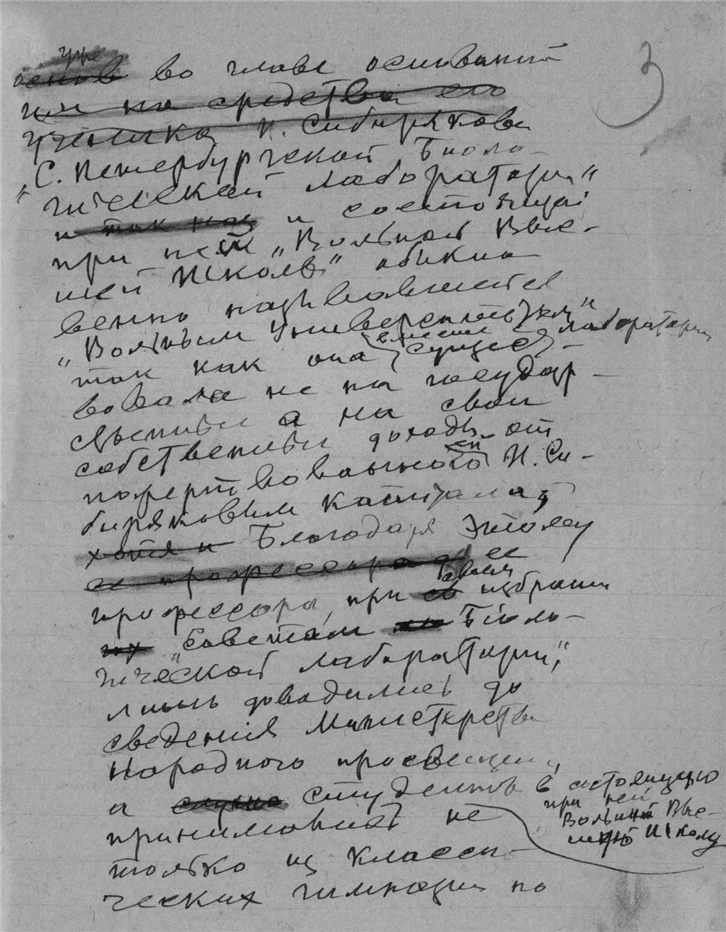 3
уже
~~основ~~ во главе основанной
~~им на средства его~~
~~ученика~~ И. Сибирякова
„С. Петербургской Биоло-
гической лаборатории“
~~и так как~~ и состоящей
при ней „Вольной Выс-
шей Школы“ обыкно
венно называвшейся
„Вольным Университетом“
так как она вместе с лаборатории сущест-
вовала не на государ-
ственные а на свои
собственные доходы от
пожертвованного И. Си-
биряковым капитала,
~~хотя и~~ Благодаря этому
~~ее профессора~~ ее
профессора, при своем избрании
„Советом Биоло-
гической лаборатории“,
лишь доводились до
сведения Министерства
Народного просвещения,
а студентов в состоящую
при ней
Вольную Выс-
шую Школу
принимались не
только из класси-
ческих гимназий но